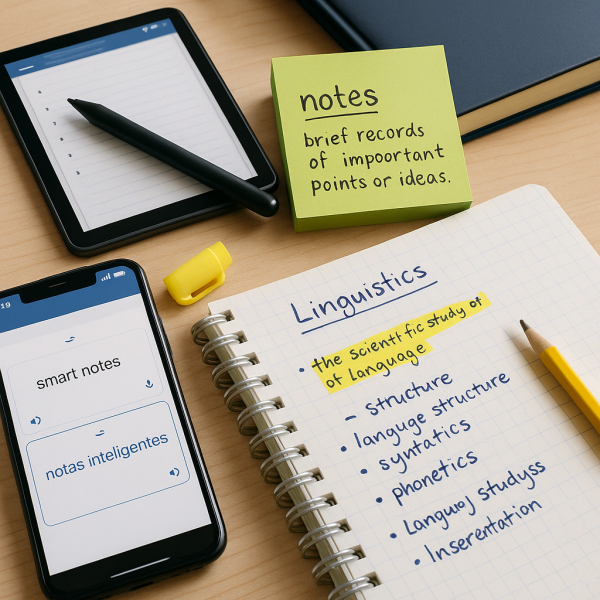 notes
brief records
of impoortant
points or ideas.
19
smart notes
notas inteligentes
Linguistics
• the scientific study of
of language
– structure
• languge structure
• syntatics
• phonetics
• Languoj studyss
• Inserentation